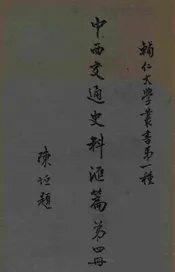 輔仁大學叢書第一種
中西交通史料滙篇第四冊
陳垣題